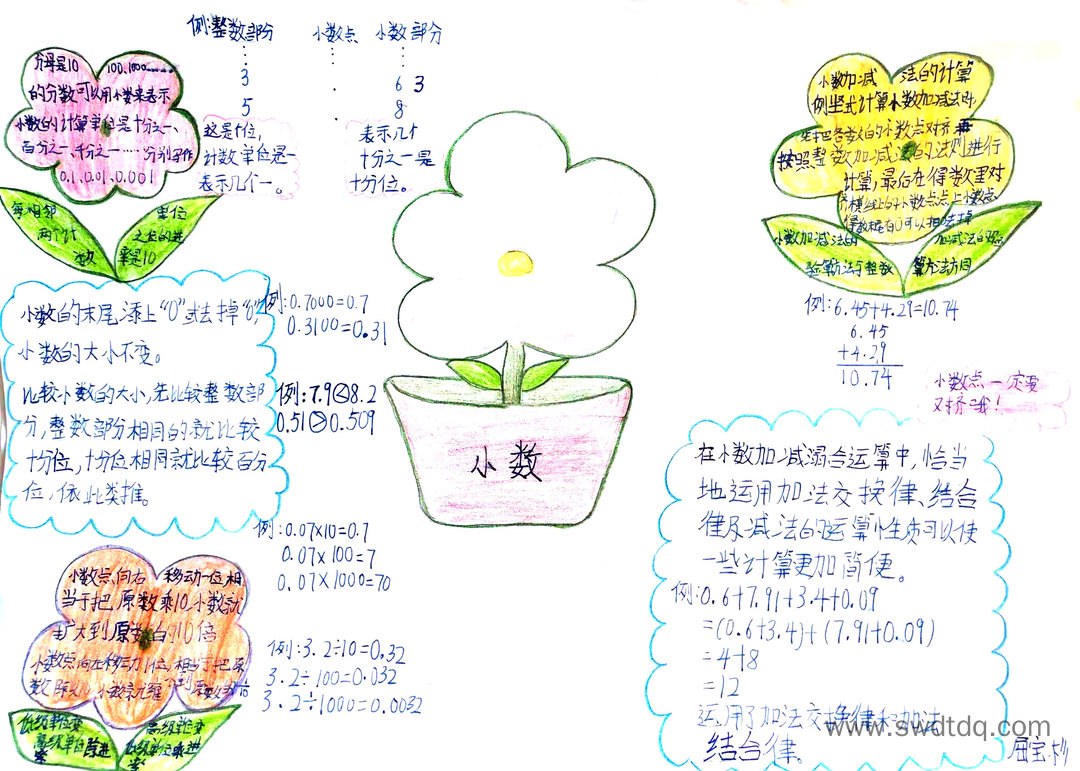 例:整数部分 小数点 小数部分
3 . 6 3
5 8
这是个位,
计数单位是一
表示几个一。
表示几个
十分之一是
十分位。
分母是10 100.1000……
的分数可以用小数来表示
小数的计算单位是十分之一、
百分之一、千分之一……分别写作
0.1、0.01、0.001
每相邻
两个计
数
单位
之间的进
率是10
小数的末尾添上“0”或去掉“0”,
小数的大小不变。
比较小数的大小,先比较整数部
分,整数部分相同的就比较
十分位,十分位相同就比较百分
位,依此类推。
例:0.7000=0.7
0.3100=0.31
例:7.9<8.2
0.51>0.509
小数
例:0.07×10=0.7
0.07×100=7
0.07×1000=70
小数点向右移动一位,相
当于把原数乘10,小数就
扩大到原数的10倍
小数点向左移动1位,相当于把原
例:3.2÷10=0.32
3.2÷100=0.032
3.2÷1000=0.0032
低级单位变
高级单位除进
率
高级单位变
低级单位乘进
率
小数加减法的计算
例竖式计算小数加减法时
先把各数的小数点对齐再
按照整数加减法的法则进行
计算,最后在得数里对
齐横线上的小数点点上小数点、
小数加减法的
验算方法与整数
加减法的验
算方法方同
例:6.45+4.29=10.74
6.45
+4.29
10.74
小数点一定要
对挤哦!
在小数加减混合运算中,恰当
地运用加法交换律、结合
律及减法的运算性质可以使
一些计算更加简便。
例:0.6+7.91+3.4+0.09
=(0.6+3.4)+(7.91+0.09)
=4+8
=12
运用了加法交换律和加法
结合律。
www.swdtdq.com